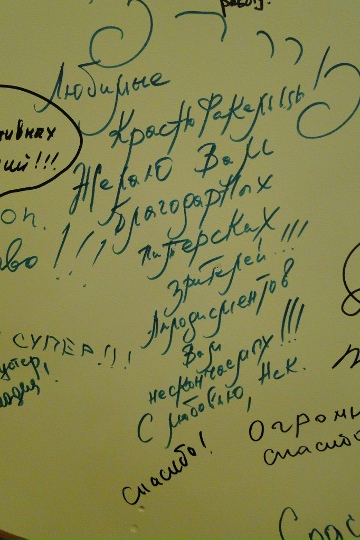 Любимые
Краснофакельцы!
Желаю Вам
благодарных
питерских
зрителей!!!
Аплодисментов
Вам
нескончаемых!!!
С любовью, Нск.
спасибо!
СУПЕР!!!
Огромн
спасибо
Спас